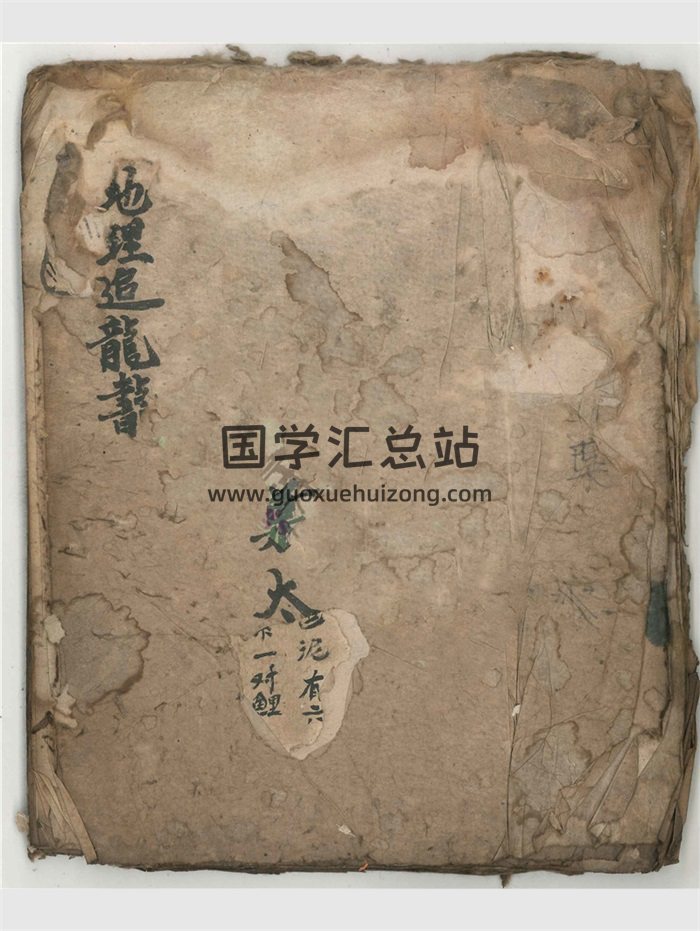 地理追龍書
国学汇总站
www.guoxuehuizong.com
太
泥有六
下一对鲤